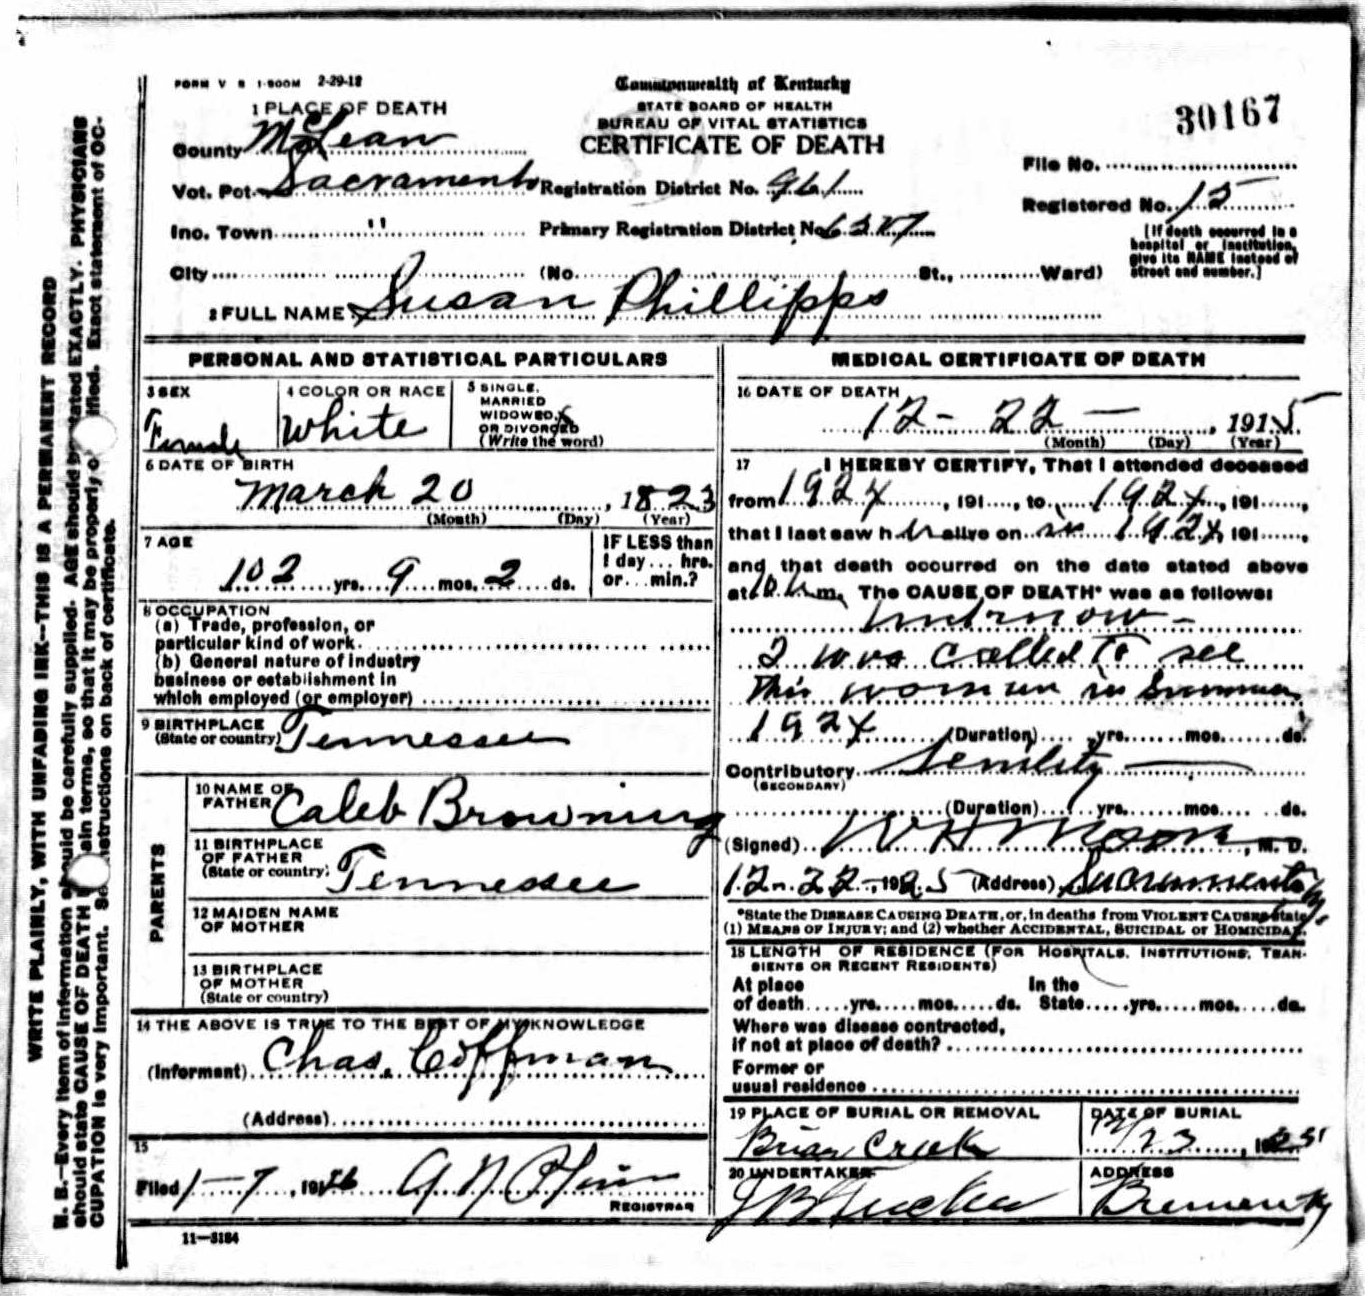 FORM V S 1-500M 2-29-12
Commonwealth of Kentucky
STATE BOARD OF HEALTH
BUREAU OF VITAL STATISTICS
CERTIFICATE OF DEATH
30167
File No.
Registered No. 15
[If death occurred in a hospital or institution, give its NAME instead of street and number.]
1 PLACE OF DEATH
County McLean
Vot. Pct. Sacramento Registration District No. 961
Inc. Town " Primary Registration District No. 6327
City (No. St., Ward)
2 FULL NAME Susan Phillipps
PERSONAL AND STATISTICAL PARTICULARS
3 SEX
Female
4 COLOR OR RACE
White
5 SINGLE,
MARRIED
WIDOWED X
OR DIVORCED
(Write the word)
6 DATE OF BIRTH
March 20, 1823
(Month) (Day) (Year)
7 AGE
102 yrs. 9 mos. 2 ds.
IF LESS than
1 day... hrs.
or... min.?
8 OCCUPATION
(a) Trade, profession, or
particular kind of work
(b) General nature of industry
business or establishment in
which employed (or employer)
9 BIRTHPLACE
(State or country) Tennessee
PARENTS
10 NAME OF
FATHER Caleb Browning
11 BIRTHPLACE
OF FATHER
(State or country) Tennessee
12 MAIDEN NAME
OF MOTHER
13 BIRTHPLACE
OF MOTHER
(State or country)
14 THE ABOVE IS TRUE TO THE BEST OF MY KNOWLEDGE
(Informant) Chas. Coffman
(Address)
15
Filed 1-7, 1926
REGISTRAR
11-3184
MEDICAL CERTIFICATE OF DEATH
16 DATE OF DEATH
12-22-, 1915
(Month) (Day) (Year)
17 I HEREBY CERTIFY, That I attended deceased
from 1924, 191..., to 1924, 191...,
that I last saw her alive on in 1924, 191...,
and that death occurred on the date stated above
at 10 m. The CAUSE OF DEATH* was as follows:
Unknow-
I was called to see
this woman in Summer
1924 (Duration) yrs. mos. ds.
Contributory Senility
(SECONDARY)
(Duration) yrs. mos. ds.
(Signed) W H Moson, M. D.
12-22-, 1925 (Address) Sacramento Ky.
*State the DISEASE CAUSING DEATH, or, in deaths from VIOLENT CAUSES, state
(1) MEANS OF INJURY; and (2) whether ACCIDENTAL, SUICIDAL or HOMICIDAL.
18 LENGTH OF RESIDENCE (FOR HOSPITALS, INSTITUTIONS, TRAN-
SIENTS OR RECENT RESIDENTS)
At place In the
of death yrs. mos. ds. State yrs. mos. ds.
Where was disease contracted,
if not at place of death?
Former or
usual residence
19 PLACE OF BURIAL OR REMOVAL
Briar Creek
DATE OF BURIAL
12/23, 1925
20 UNDERTAKER
J B Tucker
ADDRESS
Bremen Ky
WRITE PLAINLY, WITH UNFADING INK—THIS IS A PERMANENT RECORD
N. B.—Every item of information should be carefully supplied. AGE should be stated EXACTLY. PHYSICIANS
should state CAUSE OF DEATH in plain terms, so that it may be properly classified. Exact statement of OC-
CUPATION is very important. See instructions on back of certificate.